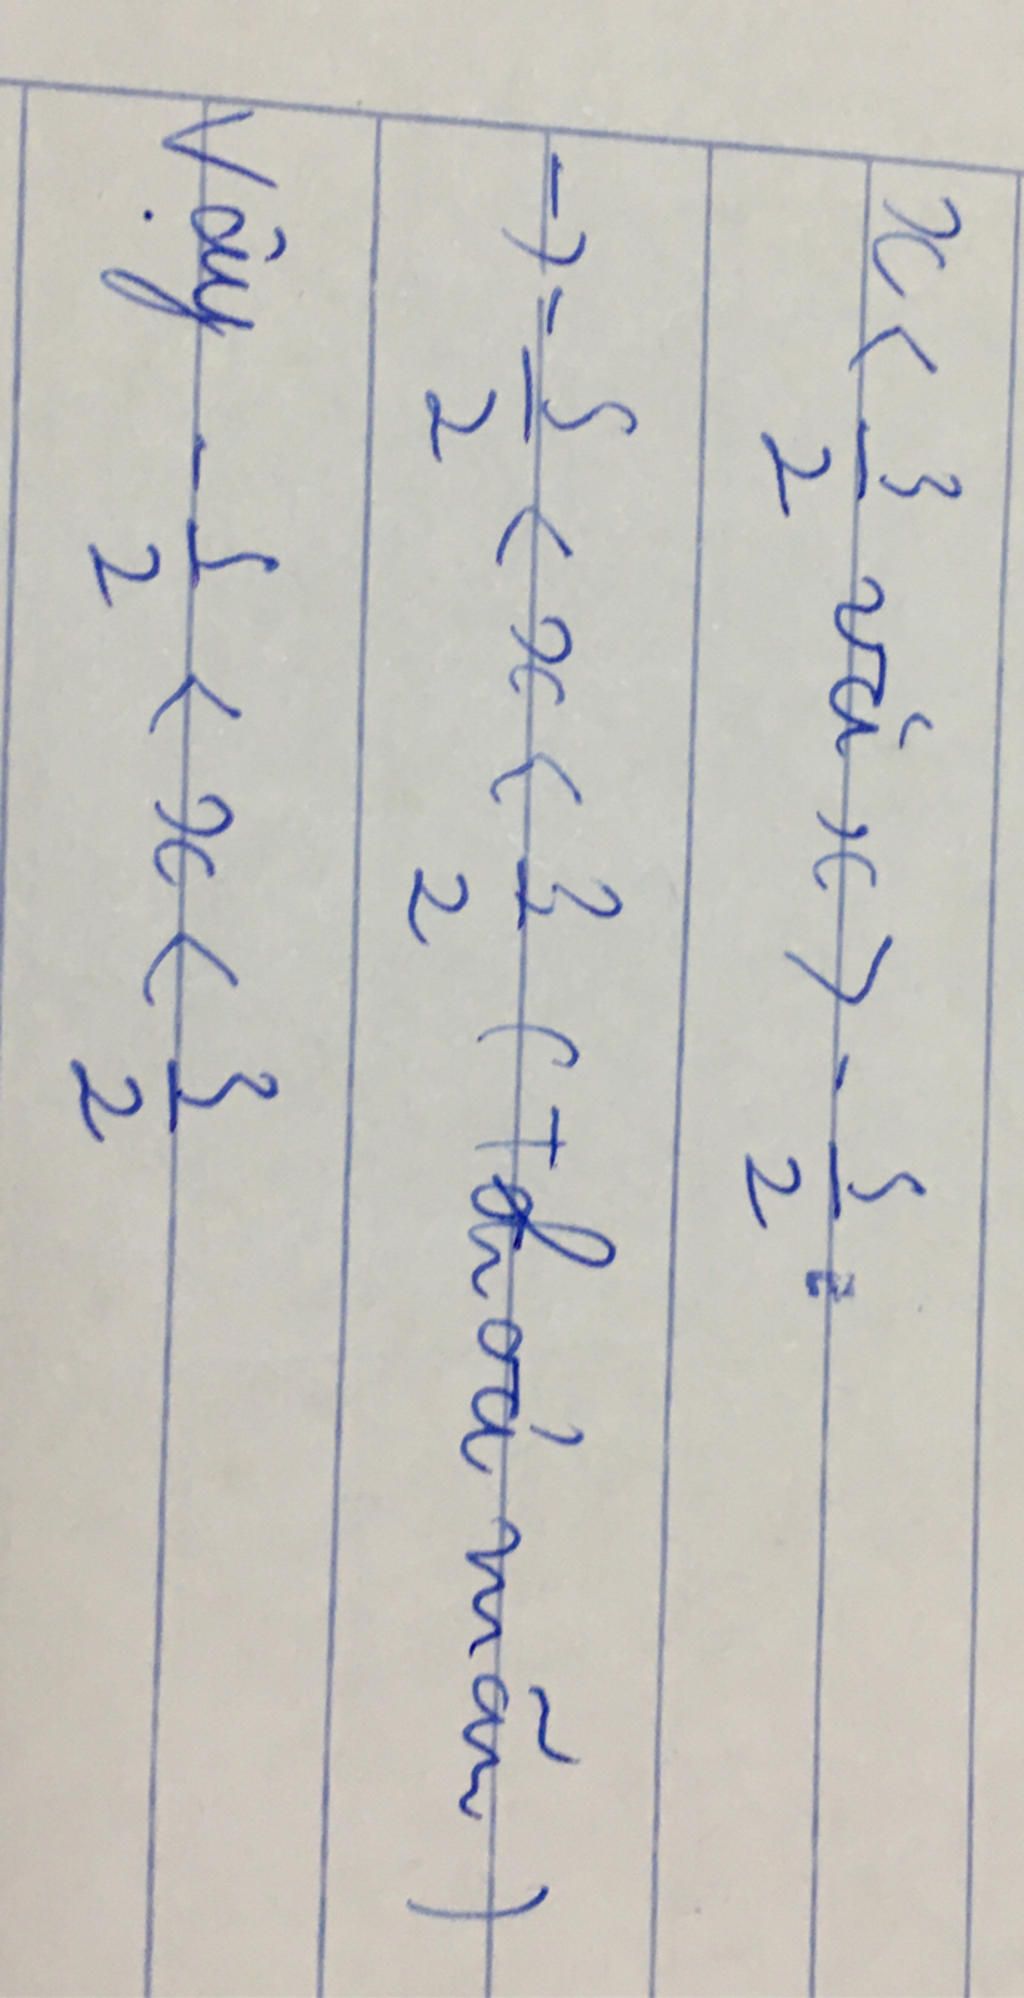 x < 3/2 và x > - 5/2
→ - 5/2 < x < 3/2 (Thoả mãn)
Vậy - 5/2 < x < 3/2